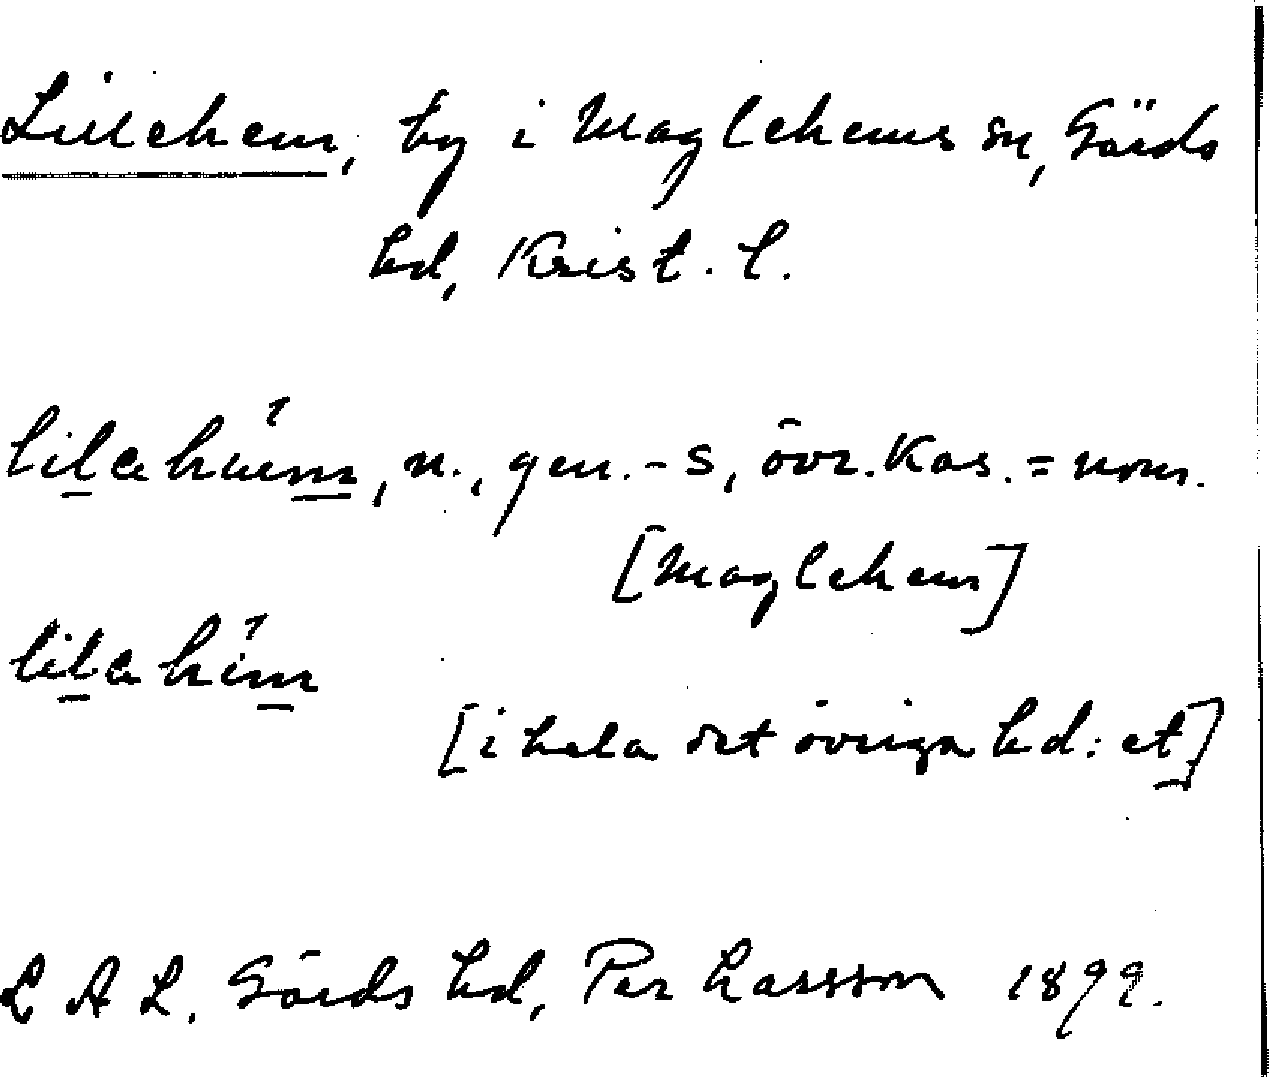 Lillehem, by i Maglehems sn, Gärds
hd, Krist. l.
lilahäim, n., gen. -s, övr. Kas. = nom.
[Maglehem]
lilahim
[i hela det övriga hd: et]
L A L. Gärds hd, Per Larsson 1899.